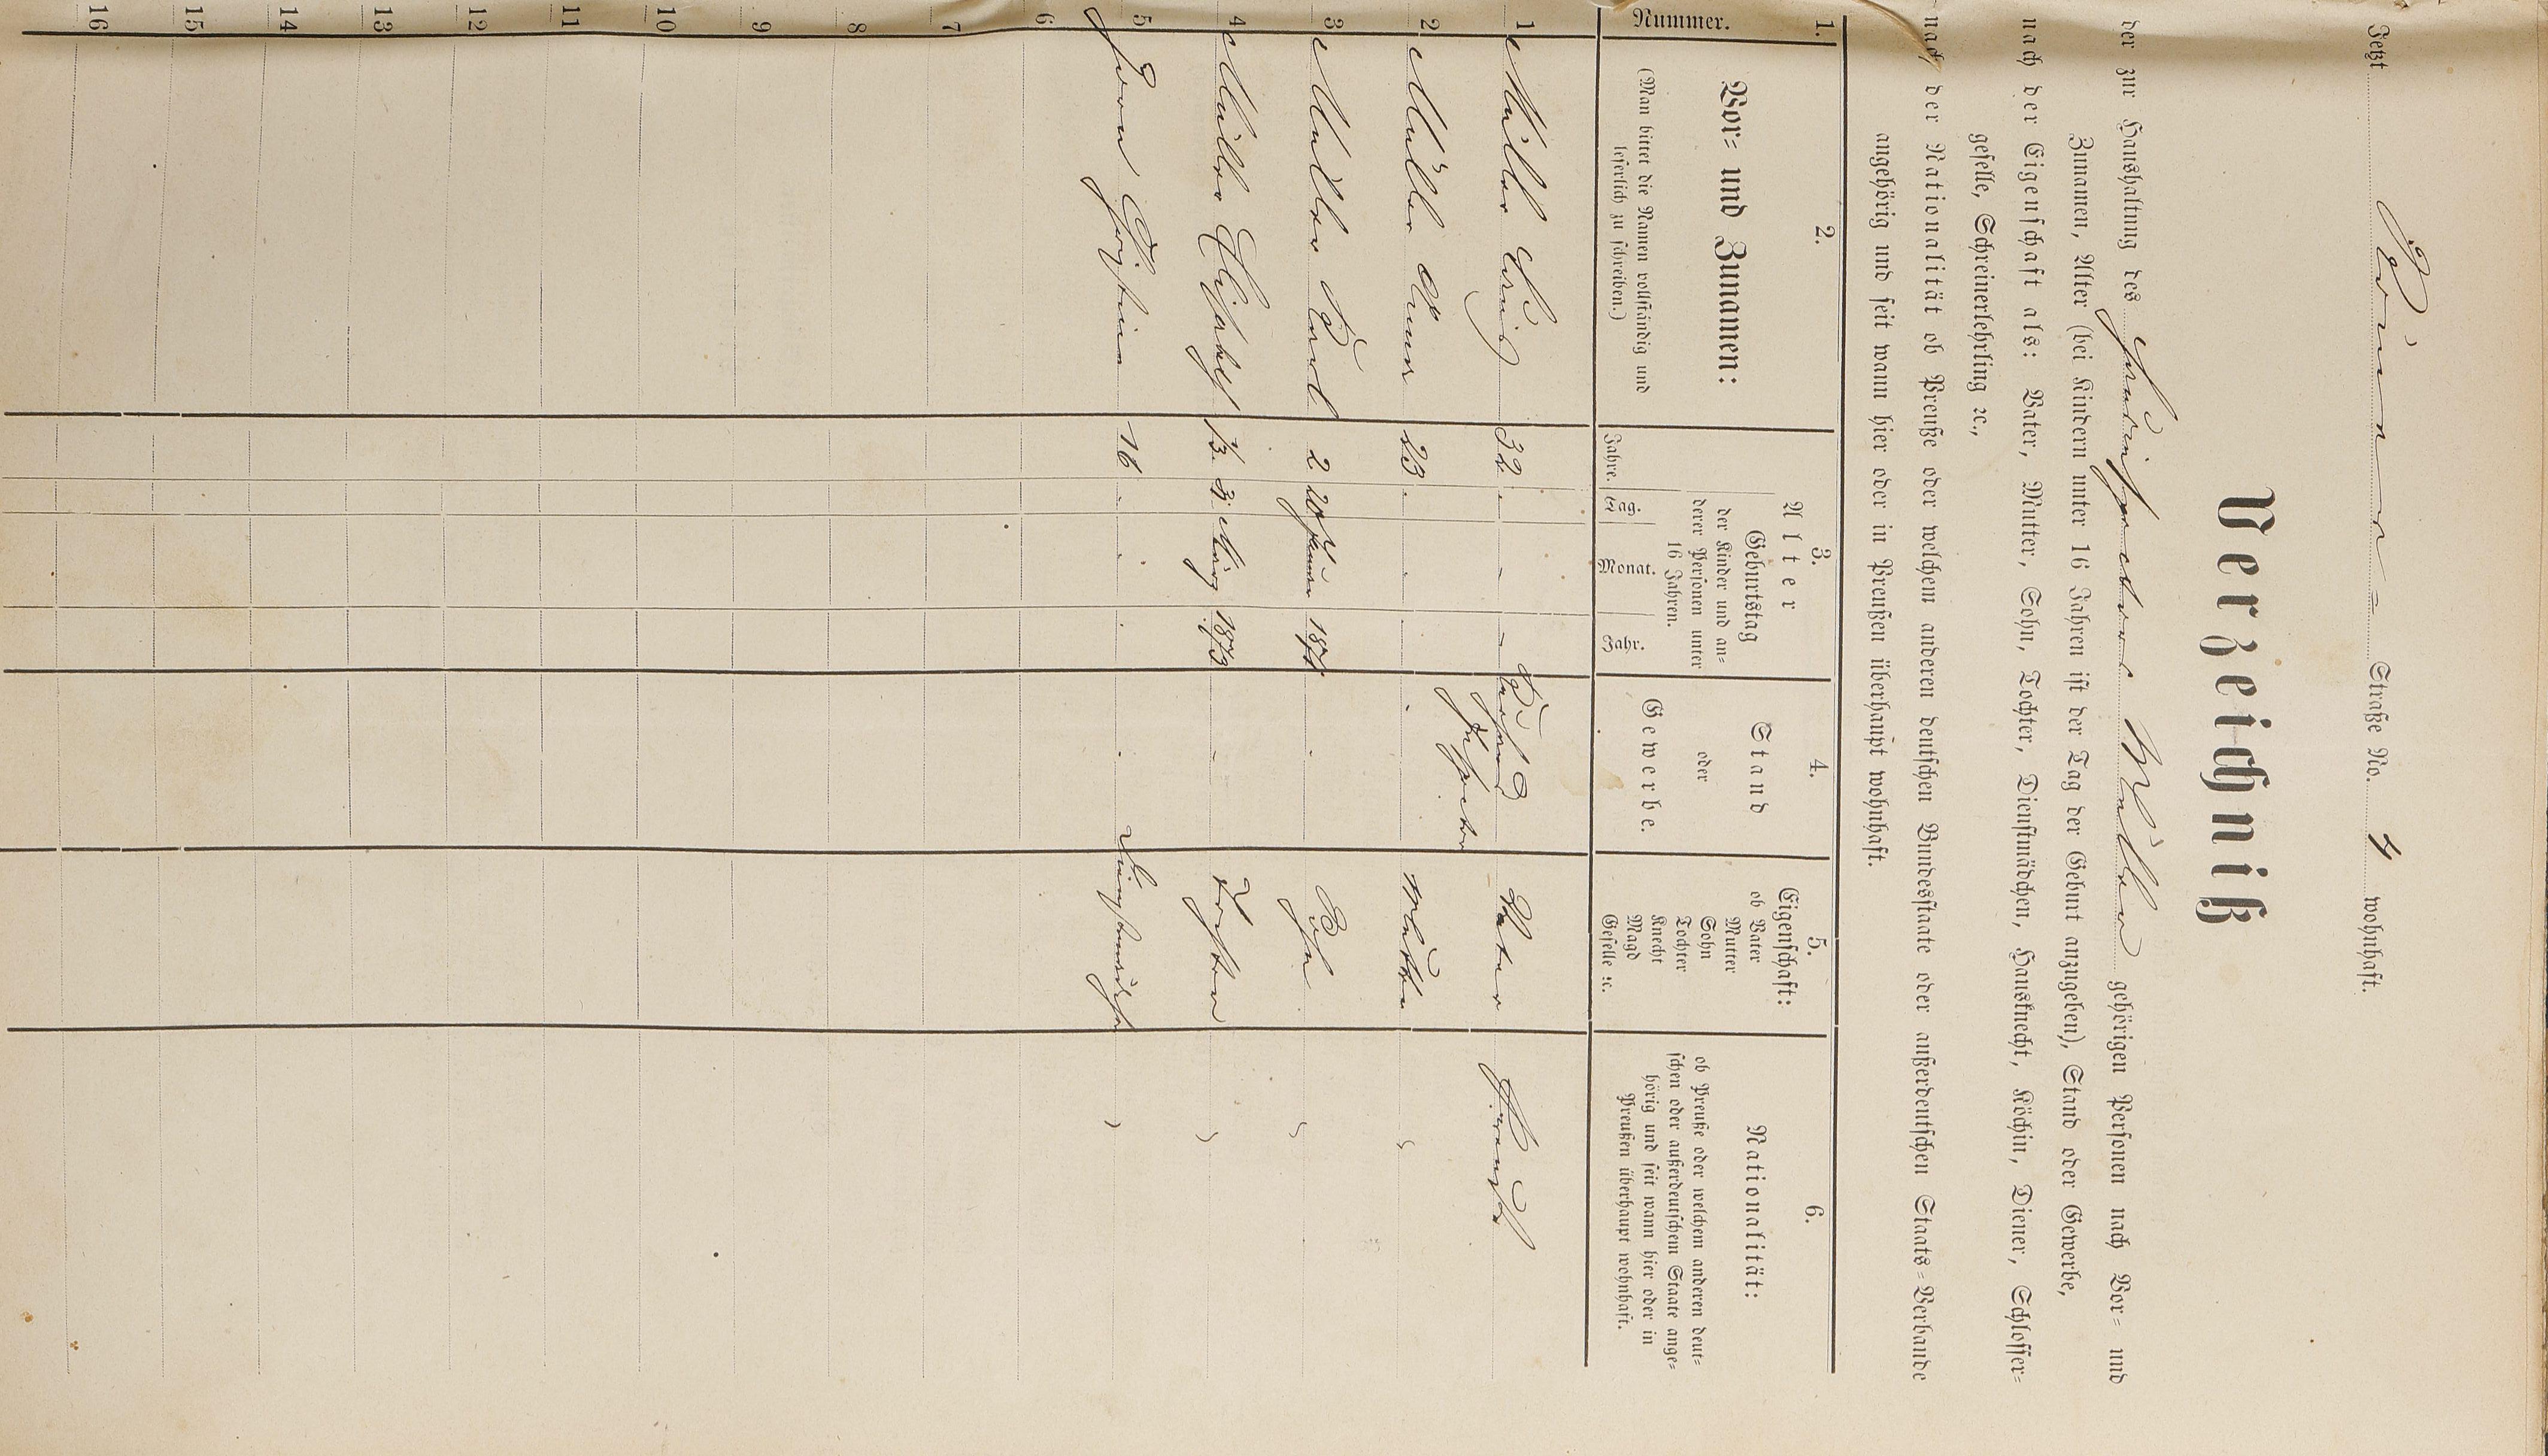 Jetzt Straße No. 4 wohnhaft.
Verzeichniß
der zur Haushaltung des Müller gehörigen Personen nach Vor- und
Zunamen, Alter (bei Kindern unter 16 Jahren ist der Tag der Geburt anzugeben), Stand oder Gewerbe,
nach der Eigenschaft als: Vater, Mutter, Sohn, Tochter, Dienstmädchen, Hausknecht, Köchin, Diener, Schlosser-
geselle, Schreinerlehrling ꝛc.,
nach der Nationalität ob Preuße oder welchem anderen deutschen Bundesstaate oder außerdeutschen Staats-Verbande
angehörig und seit wann hier oder in Preußen überhaupt wohnhaft.
1. 2. 3. 4. 5. 6.
Nummer.
Vor- und Zunamen:
(Man bittet die Namen vollständig und
leserlich zu schreiben.)
Alter
Geburtstag
der Kinder und an-
derer Personen unter
16 Jahren.
Jahre. Tag. Monat. Jahr.
Stand
oder
Gewerbe.
Eigenschaft:
ob Vater
Mutter
Sohn
Tochter
Knecht
Magd
Geselle ꝛc.
Nationalität:
ob Preuße oder welchem anderen deut-
schen oder außerdeutschem Staate ange-
hörig und seit wann hier oder in
Preußen überhaupt wohnhaft.
1 Müller 32 Vater Preuße
2 Müller Anna 23 Mutter
3 Müller Karl 2 20 Januar 1871 Sohn
4 Müller Elisabeth ½ 3 März 1873 Tochter
5 Christine 16
6
7
8
9
10
11
12
13
14
15
16